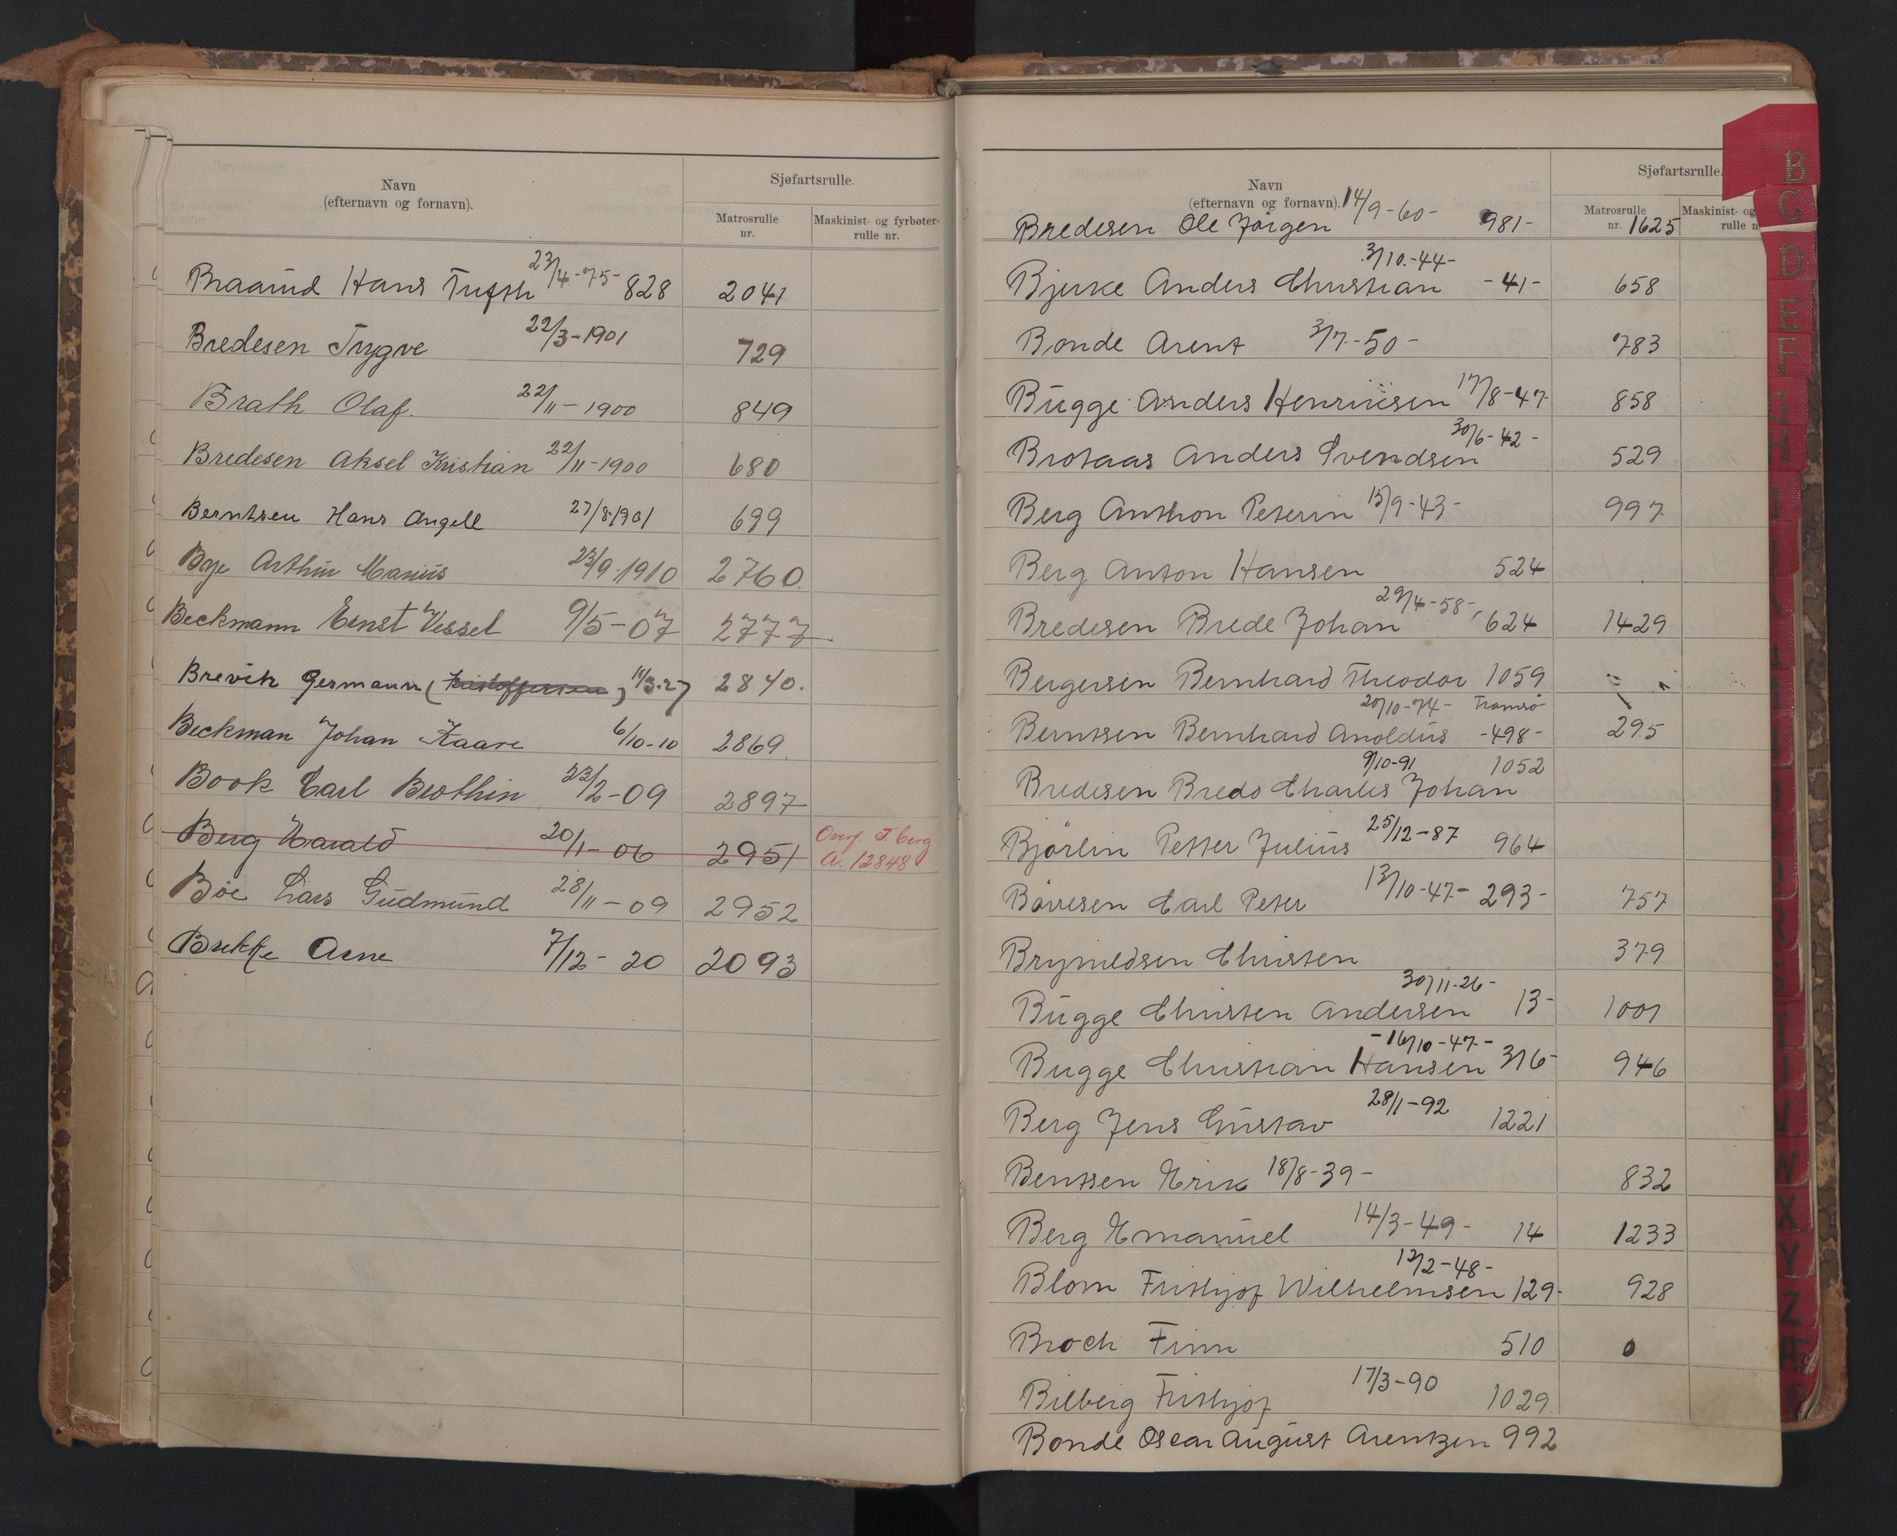 Navn
(efternavn og fornavn).
Sjøfartsrulle.
Matrosrulle
nr.
Maskinist- og fyrbøter-
rulle nr.
Braarud Hans Tufth 23/4-75- 828 2041
Bredesen Trygve 22/3-1901 729
Brath Olaf 22/11-1900 849
Bredesen Aksel Kristian 22/11-1900 680
Berntsen Hans Angell 27/8-1901 699
Bye Arthur Marius 23/9-1910 2760
Beckmann Ernst Vessel 9/5-07 2777
Brevik Germann (Kristoffersen) 11/3-27 2840.
Beckman Johan Kaare 6/10-10 2869
Book Carl Brothin 23/2-09 2897
Berg Harald 20/1-06 2951 Overf. T. berg
A. 12848
Bøe Lars Gudmund 28/11-09 2952
Brekke Arne 7/12-20 2093
Navn
(efternavn og fornavn).
Sjøfartsrulle.
Matrosrulle
nr.
Maskinist- og
rulle n
Bredesen Ole Jørgen 14/9-60- 981- 1625
Bjerke Anders Christian 3/10-44- -41- 658
Bonde Arent 3/7-50- 783
Bugge Anders Henriksen 17/8-47- 858
Brotaas Anders Svendsen 30/6-42- 529
Berg Anthon Peterin 15/9-43- 997
Berg Anton Hansen 524
Bredesen Brede Johan 29/4-58- 624 1429
Bergersen Bernhard Theodor 1059
Berntsen Bernhard Anoldus 20/10-74- Tromsø -498- 295
Bredesen Bredo Charles Johan 9/10-91 1052
Bjørlin Petter Julius 25/12-87 964
Børresen Carl Peter 13/10-47- 293- 757
Brynildsen Christen 379
Bugge Christen Andersen 30/11-26- 13- 1001
Bugge Christian Hansen -16/10-47- 316- 946
Berg Jens Gustav 28/1-92 1221
Bentsen Erik 18/8-39- 832
Berg Emanuel 14/3-49- 14 1233
Blom Frithjof Wilhelmsen 12/2-48- 129- 928
Broch Finn 510 0
Bilberg Frithjof 17/3-90 1029
Bonde Oscar August Arentzen 992
B
C
D
E
F
G
H
V
W
X
Y
Z
Æ